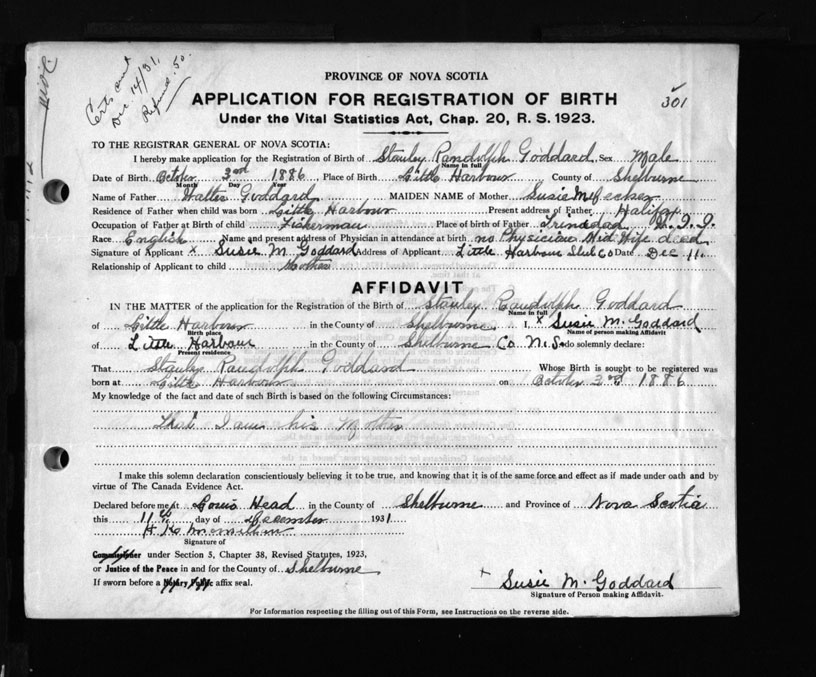 Certs sent
Dec 14/31.
Refund .50.
PROVINCE OF NOVA SCOTIA
APPLICATION FOR REGISTRATION OF BIRTH
301
Under the Vital Statistics Act, Chap. 20, R. S. 1923.
TO THE REGISTRAR GENERAL OF NOVA SCOTIA:
I hereby make application for the Registration of Birth of Stanley Randolph Goddard Sex Male
Name in full
Date of Birth October 3rd 1886 Place of Birth Little Harbour County of Shelburne
Month Day Year
Name of Father Walter Goddard MAIDEN NAME of Mother Susie M
Residence of Father when child was born Little Harbour Present address of Father Halifax
Occupation of Father at Birth of child Fisherman Place of birth of Father Trinedad
Race English Name and present address of Physician in attendance at birth no Physician Mid Wife died
Signature of Applicant x Susie M Goddard Address of Applicant Little Harbour Shel Co Date Dec 11.
Relationship of Applicant to child Mother
AFFIDAVIT
IN THE MATTER of the application for the Registration of the Birth of Stanley Randolph Goddard
Name in full
of Little Harbour in the County of Shelburne I, x Susie M. Goddard
Birth place Name of person making Affidavit
of Little Harbour in the County of Shelburne Co N.S. do solemnly declare:
Present residence
That Stanley Randolph Goddard Whose Birth is sought to be registered was
born at Little Harbour on October 3rd 1886
My knowledge of the fact and date of such Birth is based on the following Circumstances:
That I am his Mother
I make this solemn declaration conscientiously believing it to be true, and knowing that it is of the same force and effect as if made under oath and by
virtue of The Canada Evidence Act.
Declared before me at Louis Head in the County of Shelburne and Province of Nova Scotia
this 11th day of December 1931
H
Signature of
Commissioner under Section 5, Chapter 38, Revised Statutes, 1923,
or Justice of the Peace in and for the County of Shelburne
If sworn before a Notary Public affix seal.
x Susie M. Goddard
Signature of Person making Affidavit.
For Information respecting the filling out of this Form, see Instructions on the reverse side.